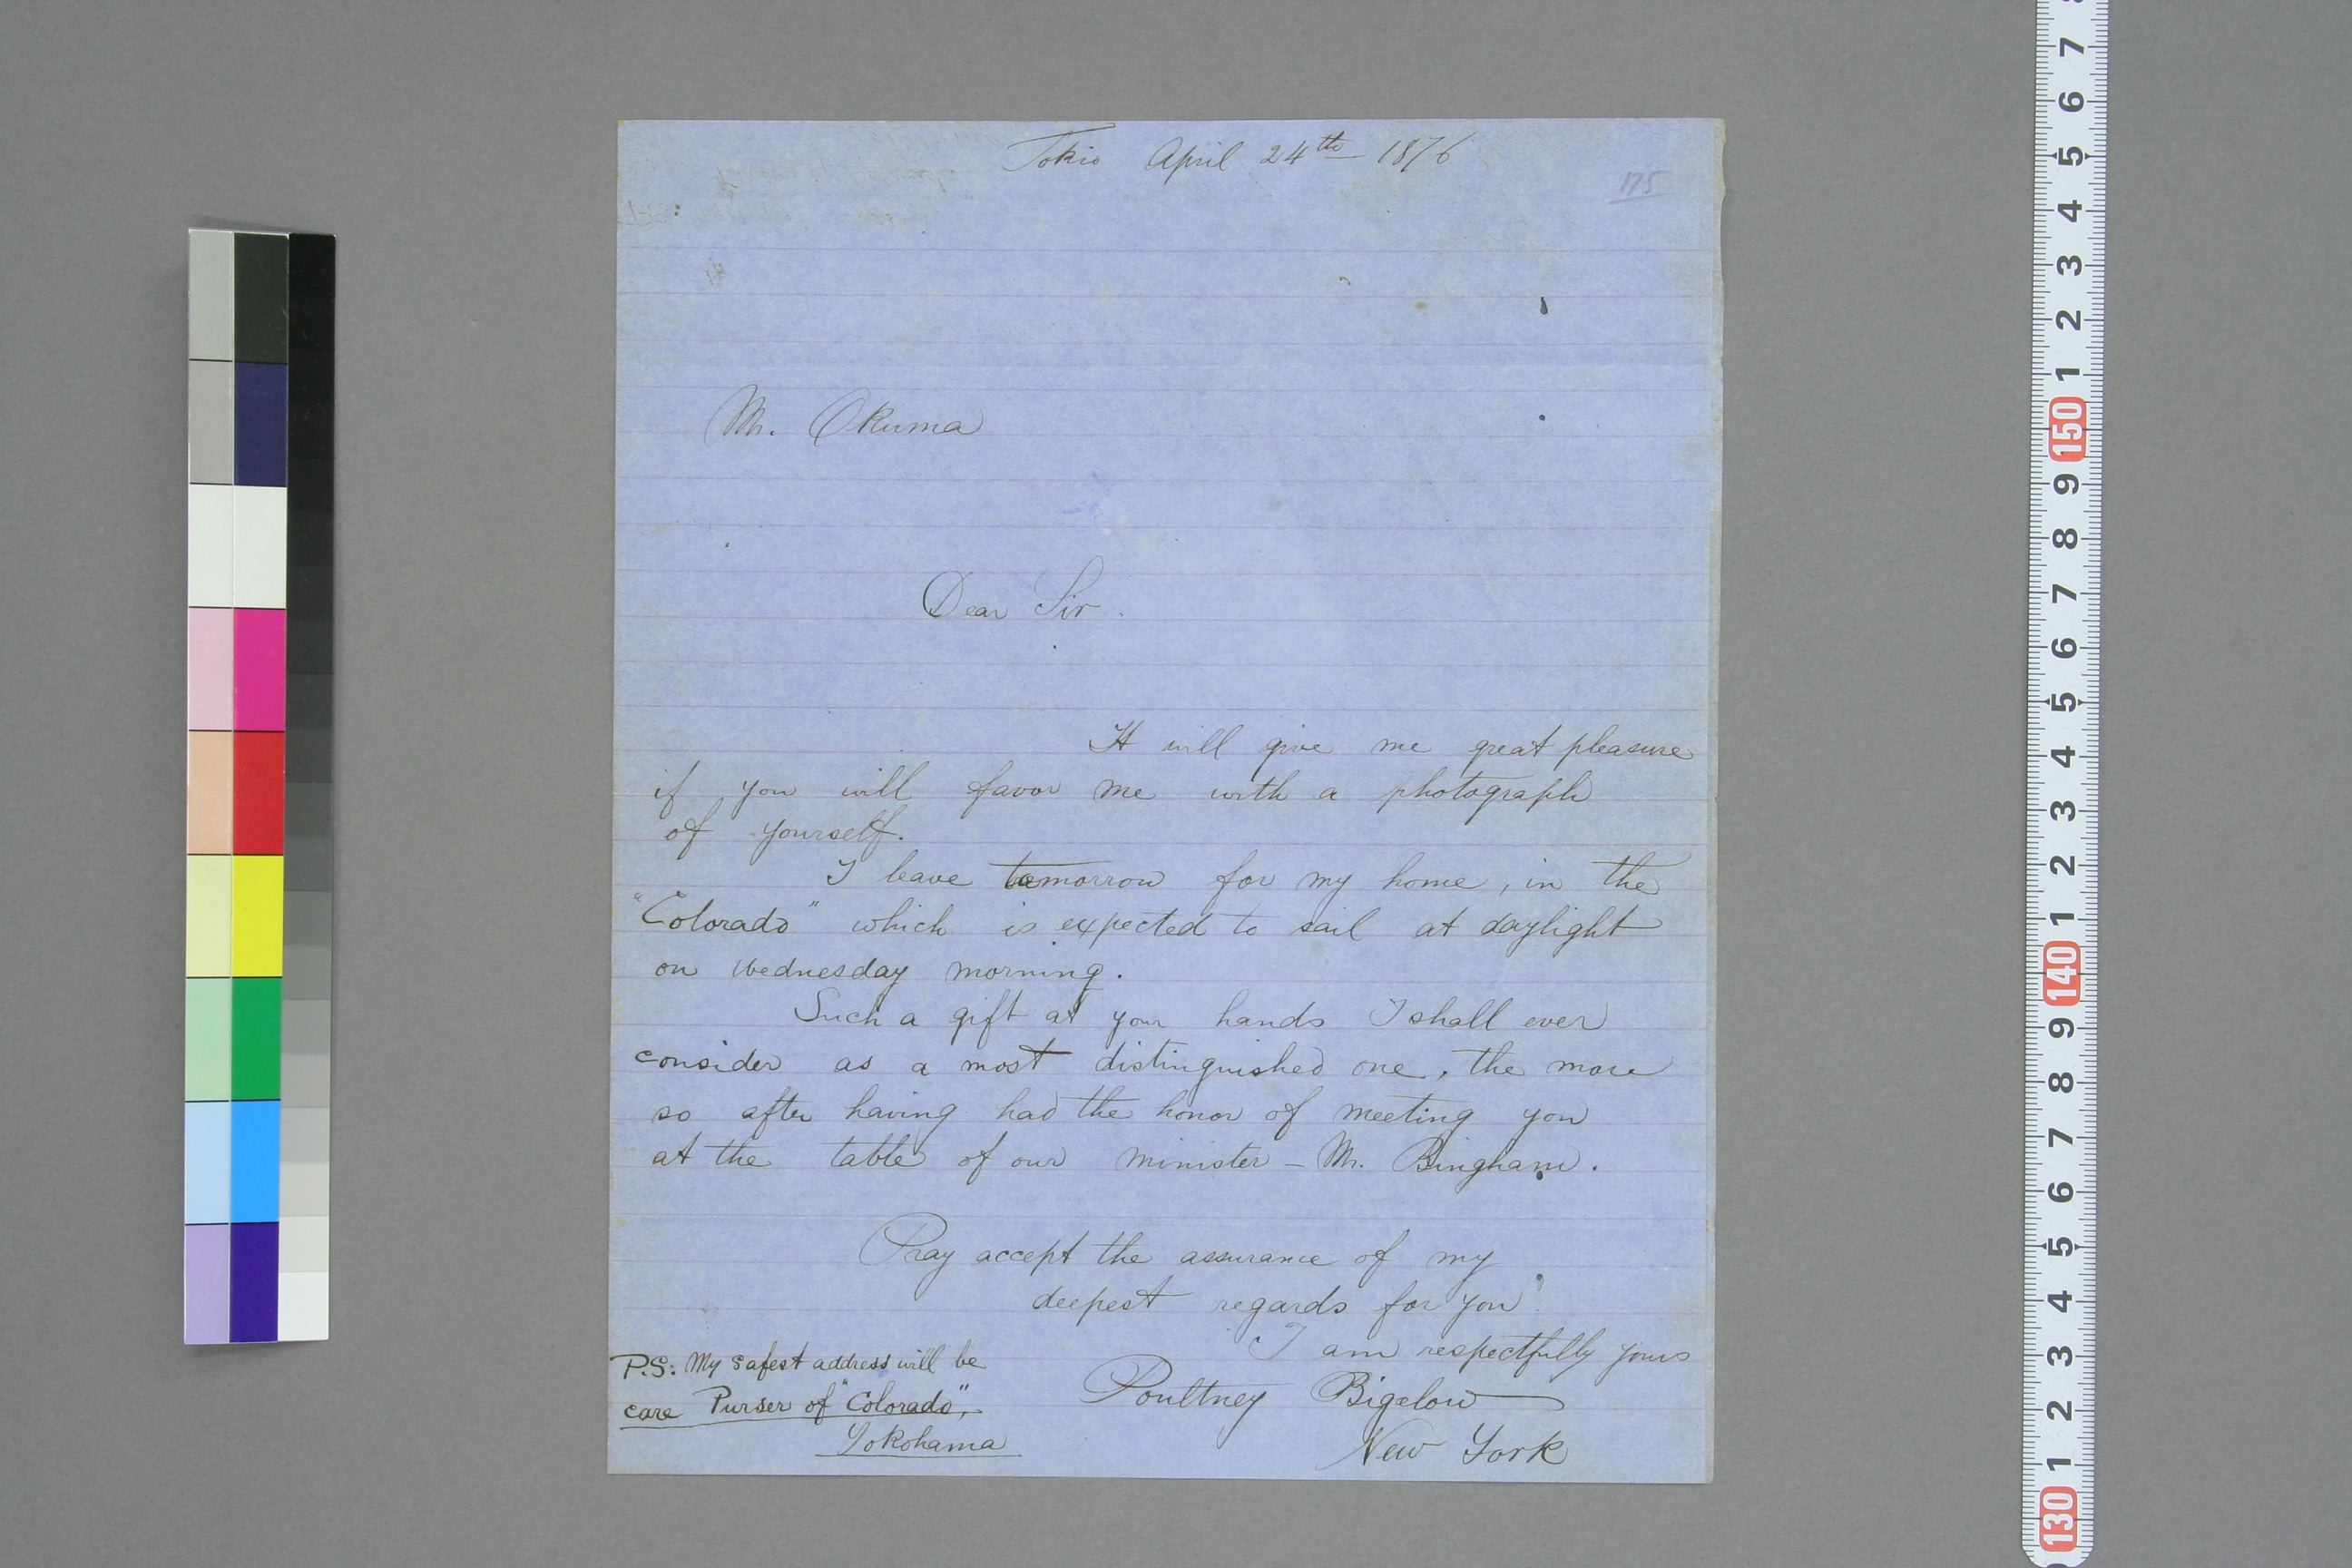 Tokio April 24th 1876
175
Mr. Okuma
Dear Sir.
It will give me great pleasure
if you will favor me with a photograph
of yourself.
I leave tomorrow for my home, in the
"Colorado" which is expected to sail at daylight
on Wednesday morning.
Such a gift at your hands I shall ever
consider as a most distinguished one, the more
so after having had the honor of meeting you
at the table of our minister - Mr. Bingham.
Pray accept the assurance of my
deepest regards for you.
I am respectfully yours
Poultney Bigelow
New York
P.S: My safest address will be
care Purser of "Colorado",
Yokohama
7
6
5
4
3
2
1
150
9
8
7
6
5
4
3
2
1
140
9
8
7
6
5
4
3
2
1
130